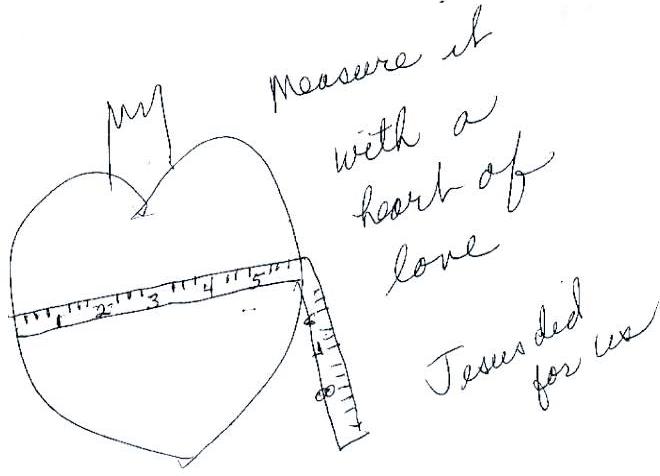 Measure it
with a
heart of
love
Jesus did
for us
1 2 3 4 5
8